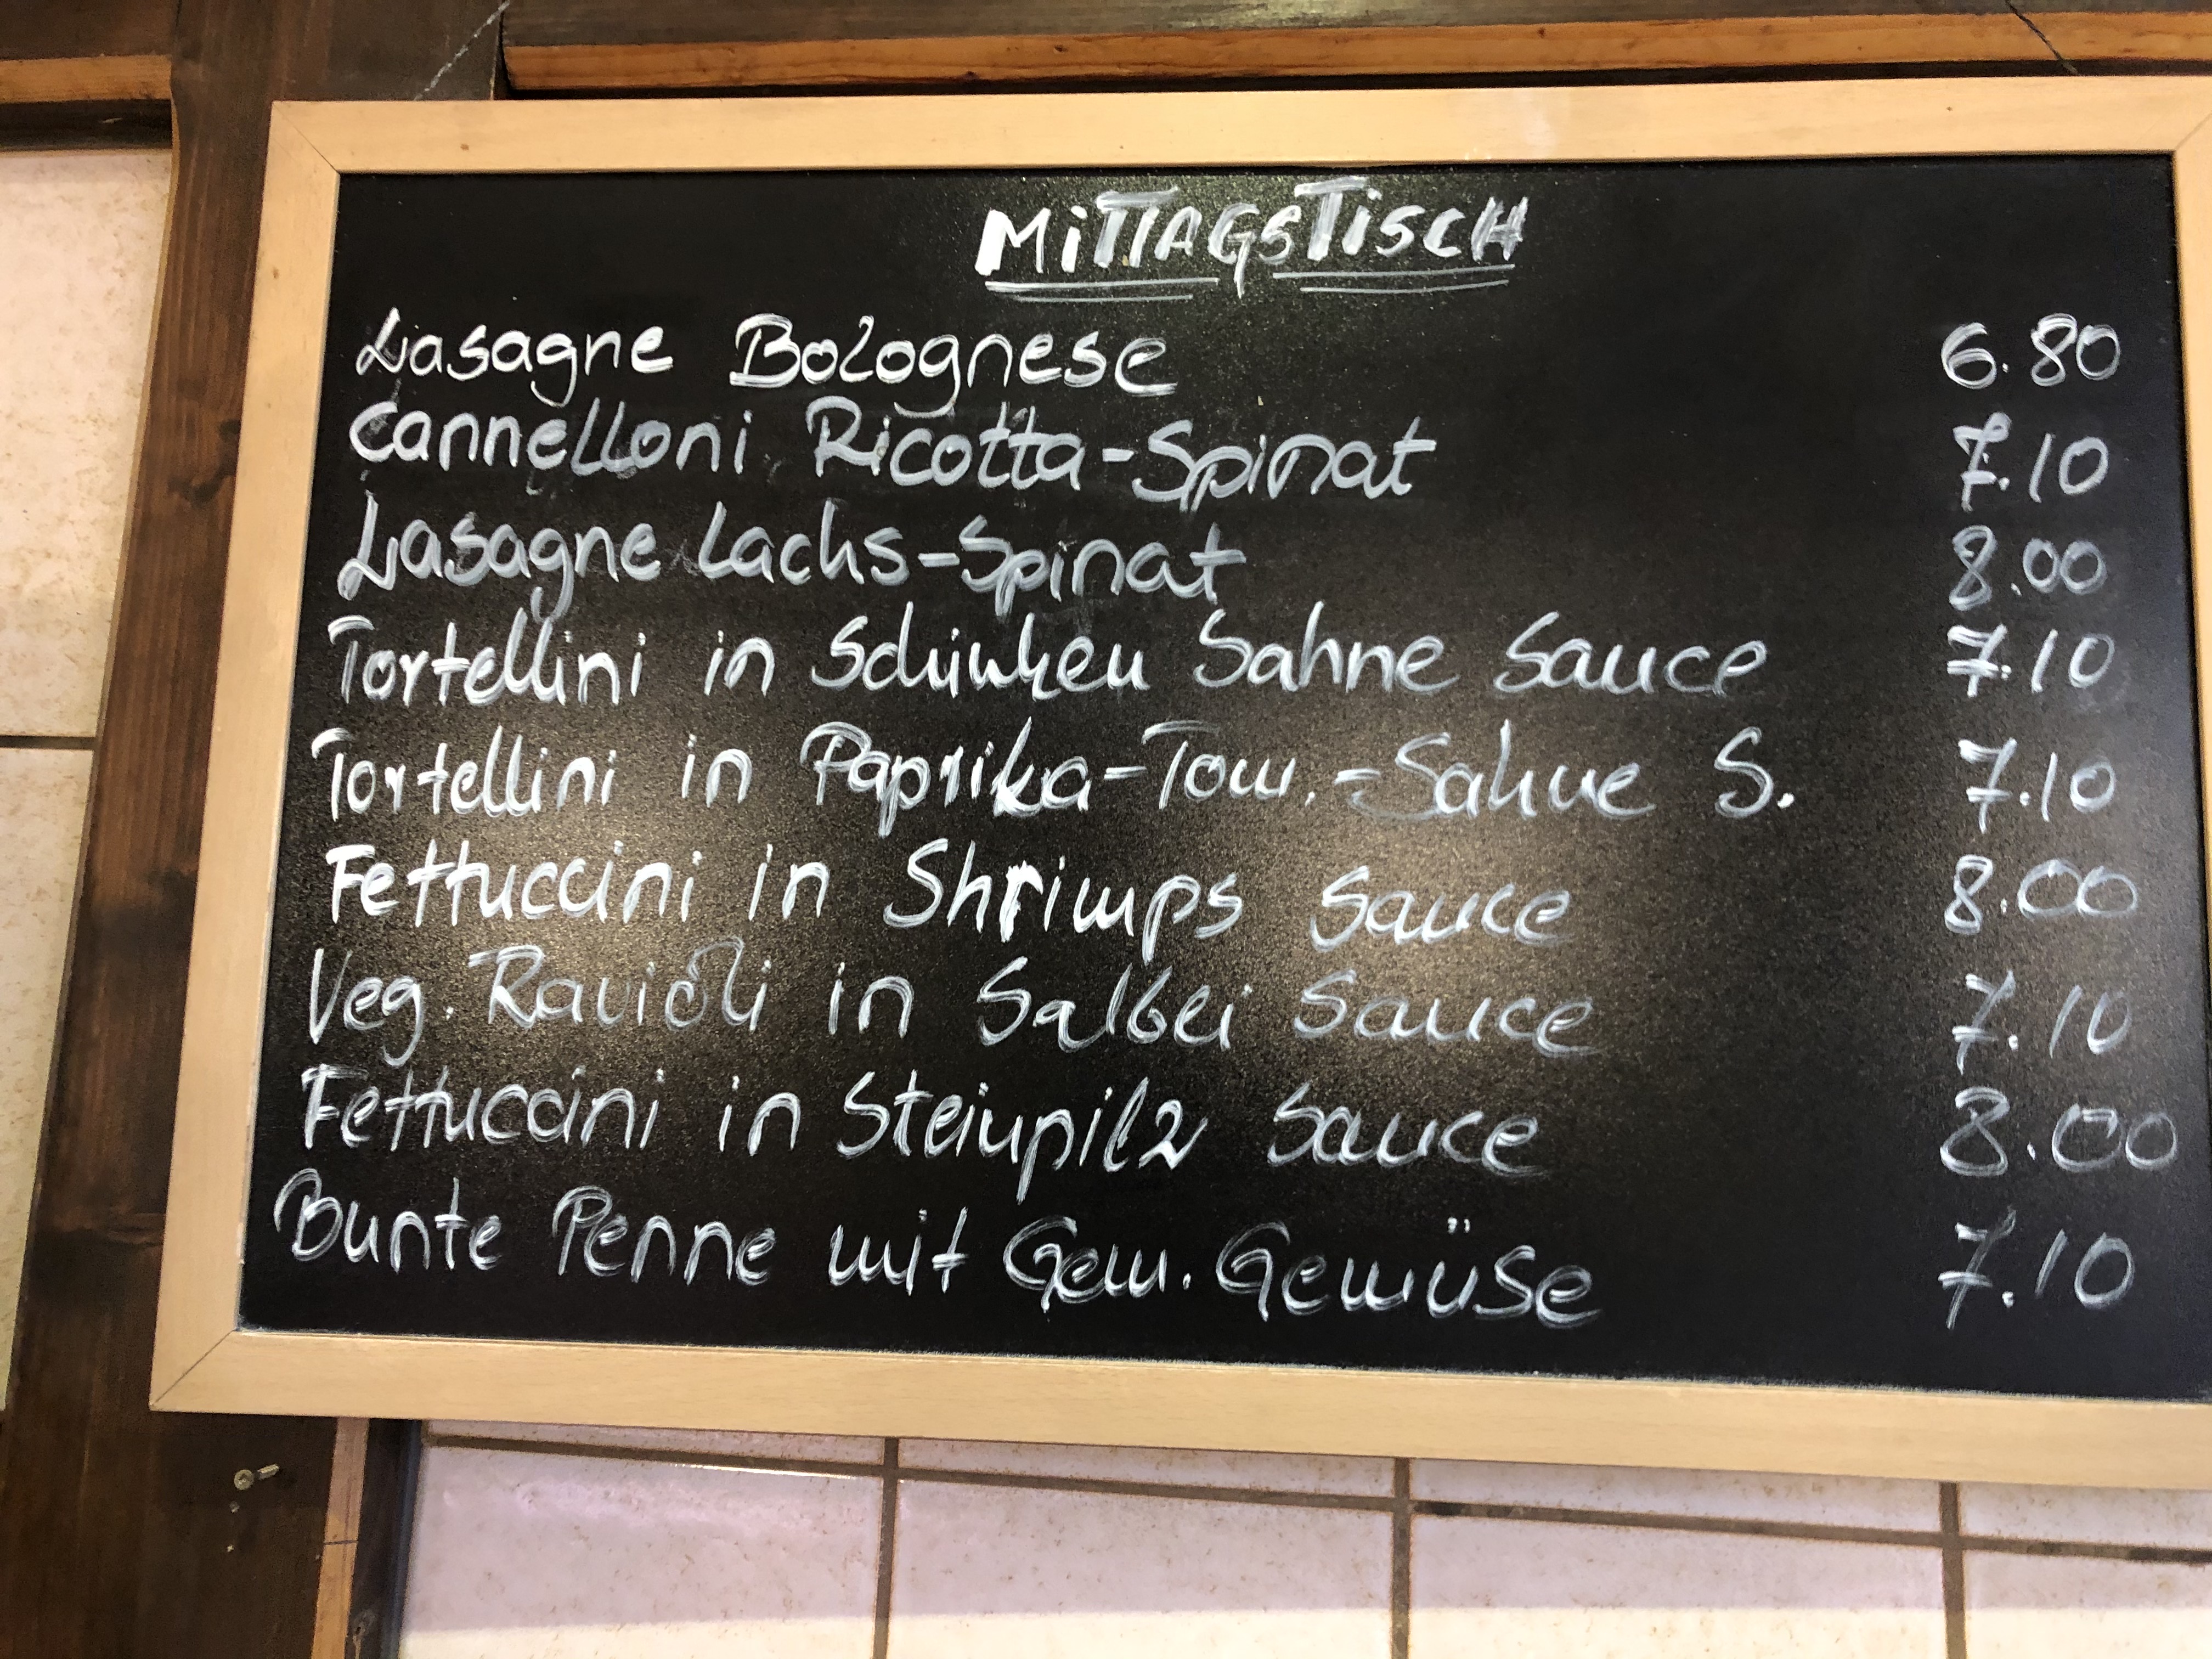 MITTAGSTISCH
Lasagne Bolognese 6.80
Cannelloni Ricotta-Spinat 7.10
Lasagne Lachs-Spinat 8.00
Tortellini in Schinken Sahne Sauce 7.10
Tortellini in Paprika-Tom.-Sahne S. 7.10
Fettuccini in Shrimps Sauce 8.00
Veg. Ravioli in Salbei Sauce 7.10
Fettuccini in Steinpilz Sauce 8.00
Bunte Penne mit Gem. Gemüse 7.10